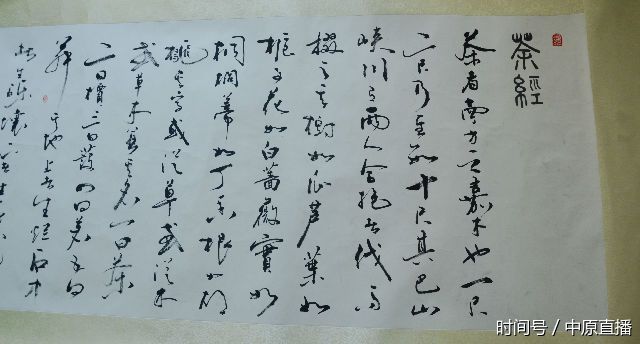 茶經
茶者南方之嘉木也一尺
二尺乃至數十尺其巴山
峽川有兩人合抱者伐而
掇之其樹如瓜芦葉如
梔子花如白薔薇實如
栟櫚蒂如丁香根如胡
桃其字或從草或從木
或草木並其名一曰茶
二曰檟三曰蔎四曰茗五曰
荈其地上者生爛石中
櫟壤
时间号 / 中原直播